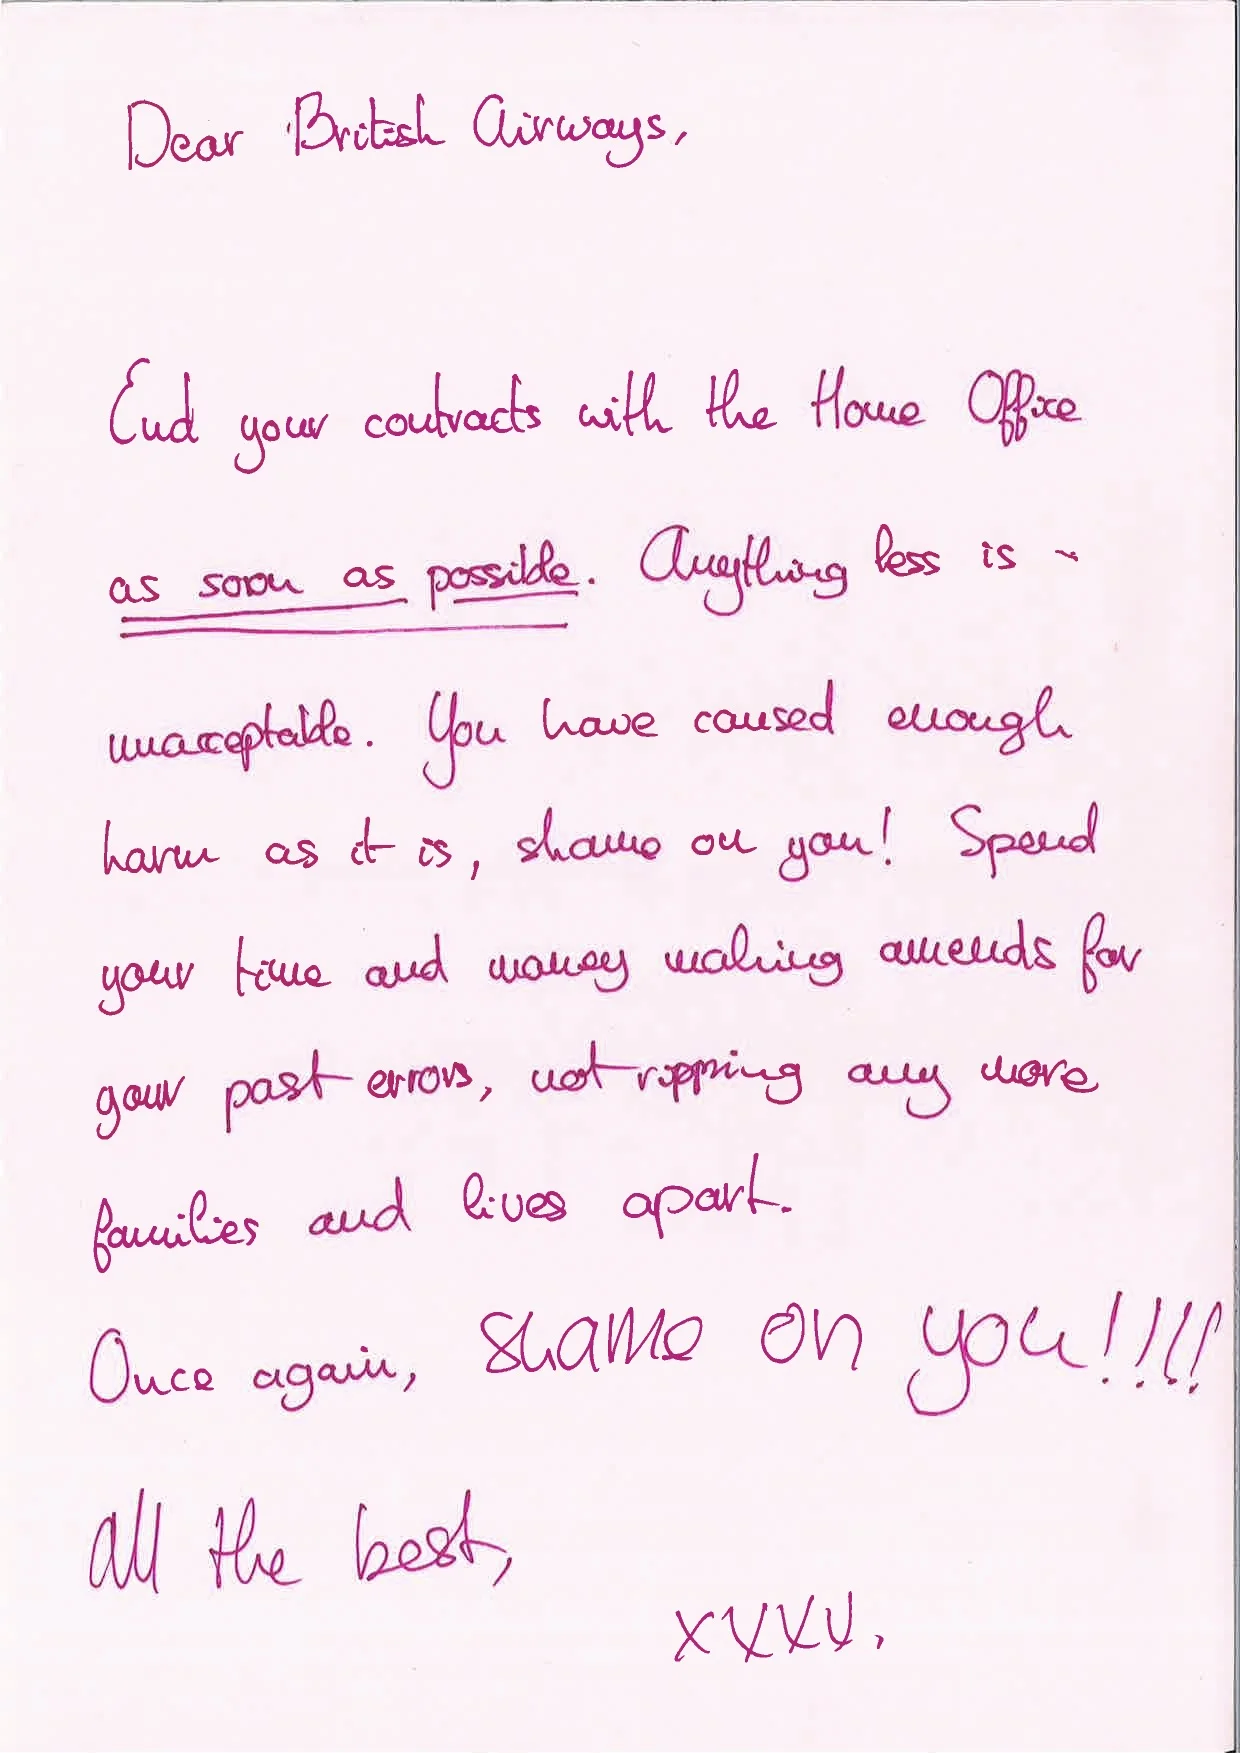 Dear British Airways,
End your contracts with the Home Office
as soon as possible. Anything less is -
unacceptable. You have caused enough
harm as it is, shame on you! Spend
your time and money making amends for
your past errors, not ripping any more
families and lives apart.
Once again, shame on you!!!!
All the best,
xxxx.